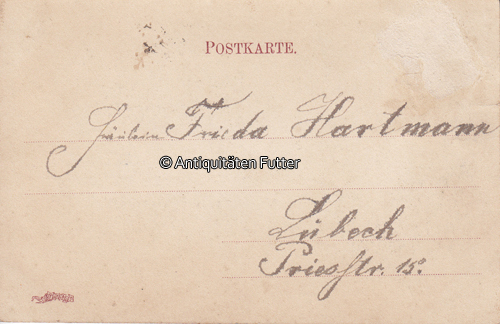 POSTKARTE.
Fräulein Frieda Hartmann
© Antiquitäten Futter
Lübeck
Priesstr. 15.